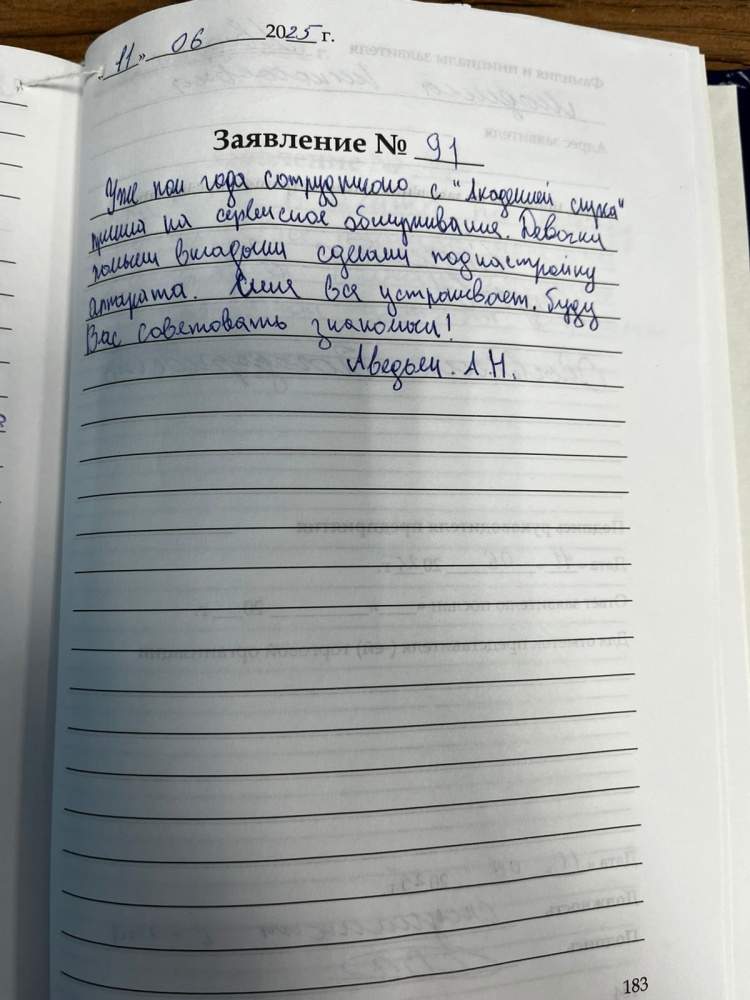 „11" 06 2025 г.
Заявление № 91
Уже пол года сотрудничаю с "Академией слуха"
пришла на сервисное обслуживания. Девочки
помыли вкладыши сделали поднастройку
аппарата. Меня все устраивает. Буду
Вас советовать знакомым!
А.Н.
183